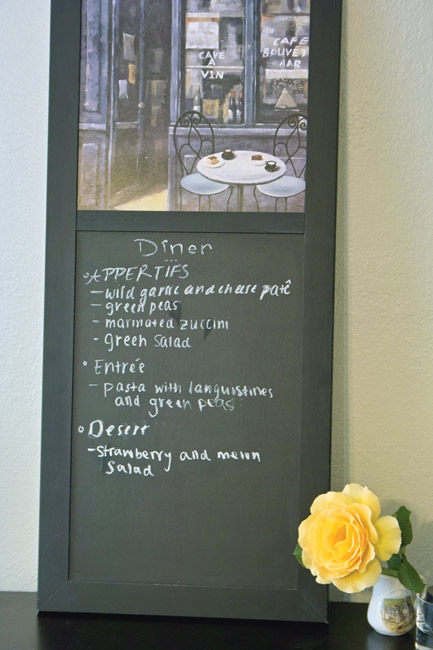 CAVE
A
VIN
CAFE
BOUVET
BAR
Dîner
APPERTIFS
- wild garlic and cheese patê
- green peas
- marinated zuccini
- green salad
Entrée
- pasta with languistines
and green peas
Desert
- Strawberry and melon
Salad